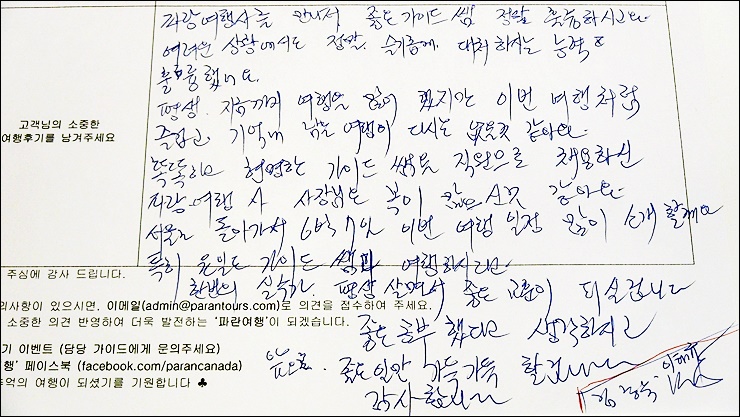 파랑여행사를 만나서 좋은 가이드 쌤 정말 훌륭하시고요
어려운 상황에서도 정말 슬기롭게 대처하시는 능력도
훌륭했네요.
평생 지금까지 여행을 많이 했지만 이번 여행처럼
즐겁고 기억에 남는 여행이 다시는 없을것 같아요.
고객님의 소중한
여행후기를 남겨주세요
똑똑하고 현명한 가이드 쌤을 직원으로 채용하신
파랑여행사 사장님도 복이 많으신것 같아요
서울로 돌아가서 이번 여행 일정 많이 소개 할께요
특히 가이드 쌤과 여행하시면
주심에 감사 드립니다.
한번의 평생 살면서 좋은 되실겁니다
의사항이 있으시면, 이메일(admin@parantours.com)로 의견을 접수하여 주세요.
소중한 의견 반영하여 더욱 발전하는 '파란여행'이 되겠습니다.
좋은 공부 했다고 생각하시고
기 이벤트 (담당 가이드에게 문의주세요)
행' 페이스북 (facebook.com/parancanada)
앞으로 좋은일만 가득가득 할겁니다
추억의 여행이 되셨기를 기원합니다 ♣
감사합니다